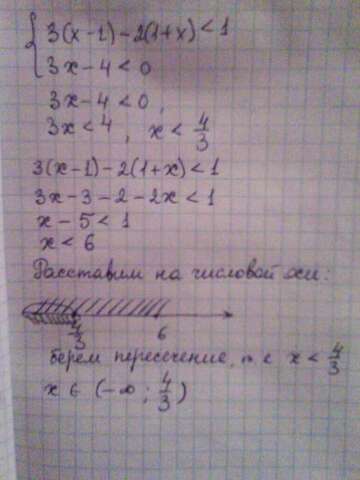 { 3(x-1)-2(1+x)<1
3x-4<0
3x-4<0,
3x<4, x<4/3
3(x-1)-2(1+x)<1
3x-3-2-2x<1
x-5<1
x<6
Расставим на числовой оси:
4/3 6
берем пересечение, т.е. x<4/3
x∈(-∞; 4/3)